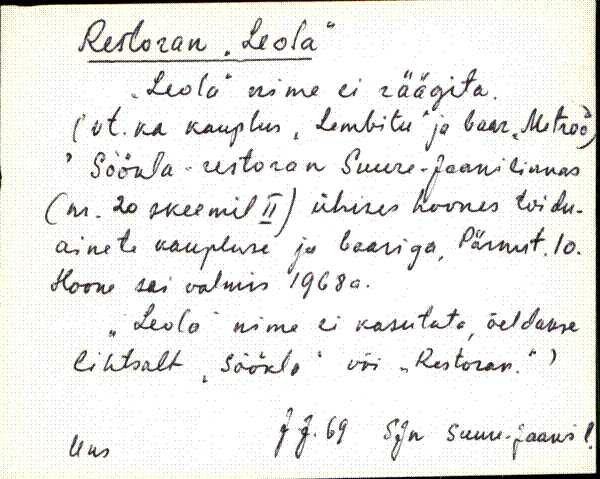 Restoran „Leola"
„Leola" nime ei räägita.
(vt. ka kauplus „Lembitu" ja baar „Metroo")
' Söökla-restoran Suure-Jaani linnas
(nr. 20 skeemil II) ühises hoones toidu-
ainete kaupluse ja baariga, Pärnu t. 10.
Hoone sai valmis 1968 a.
„Leola" nime ei kasutata, öeldakse
lihtsalt „Söökla" või „Restoran.")
J.J. 69 SJn Suure-Jaani l.
Uus